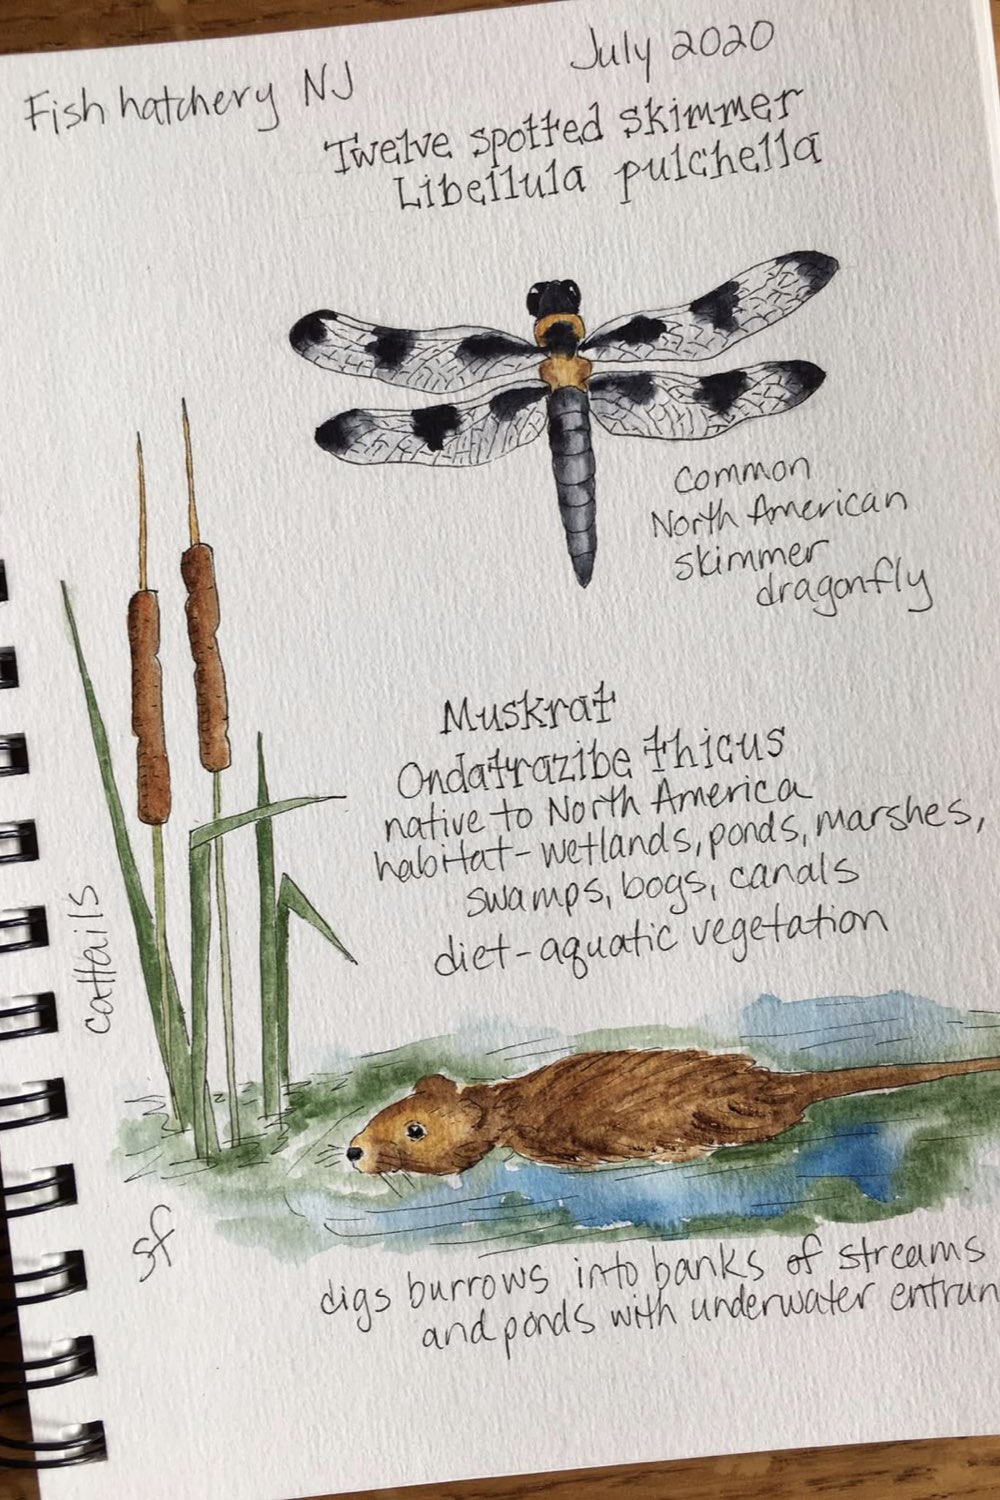 Fish hatchery NJ
July 2020
Twelve spotted skimmer
Libellula pulchella
common
North American
skimmer
dragonfly
Muskrat
Ondatrazibe thicus
native to North America
habitat - wetlands, ponds, marshes,
swamps, bogs, canals
diet - aquatic vegetation
cattails
sf
digs burrows into banks of streams
and ponds with underwater entran